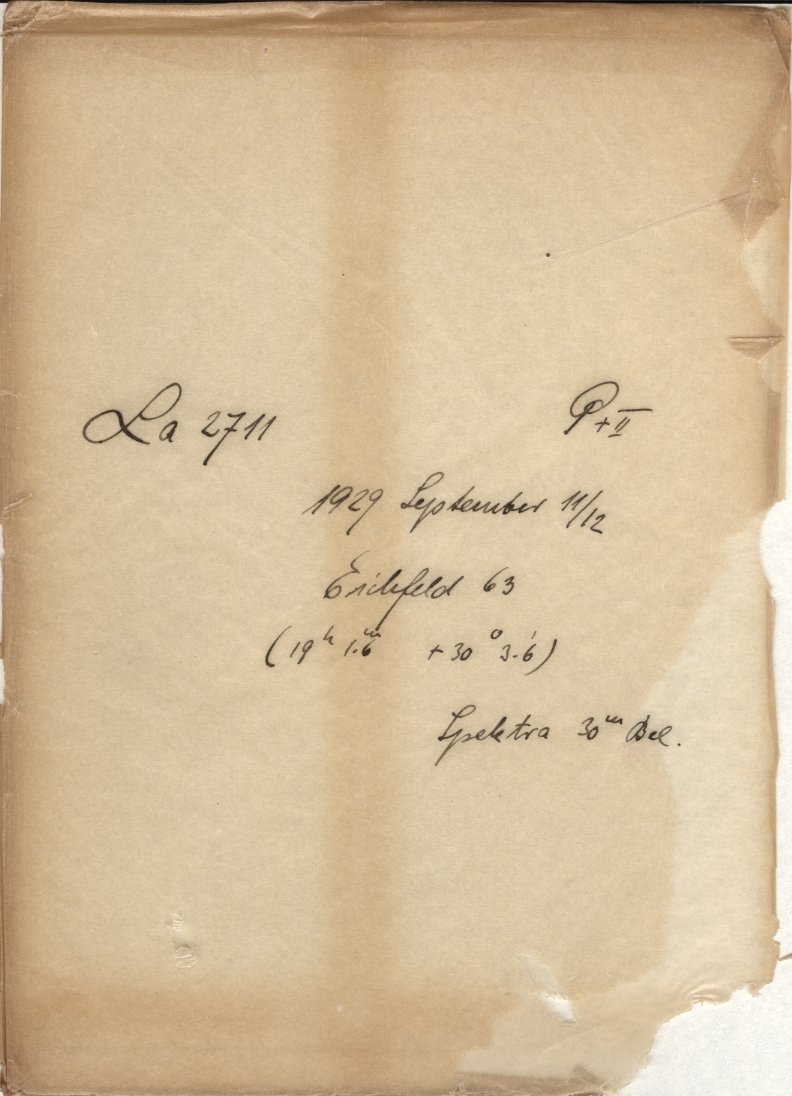 La 2711 P+II
1929 September 11/12
Eichfeld 63
(19ʰ 1.ᵐ6 +30° 3.'6)
Spektra 30ᵐ Bel.